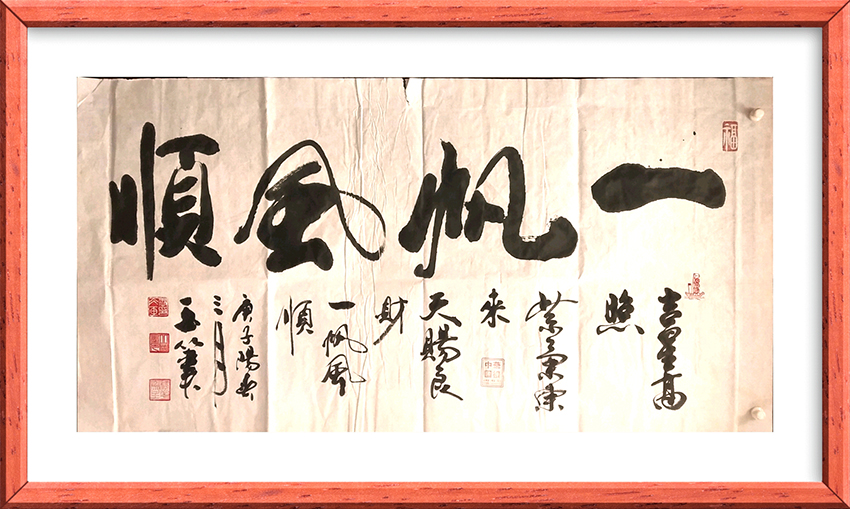 一帆風順
吉星高
照
紫氣東
来
天賜良
財
一帆風
順
庚子陽春
三月